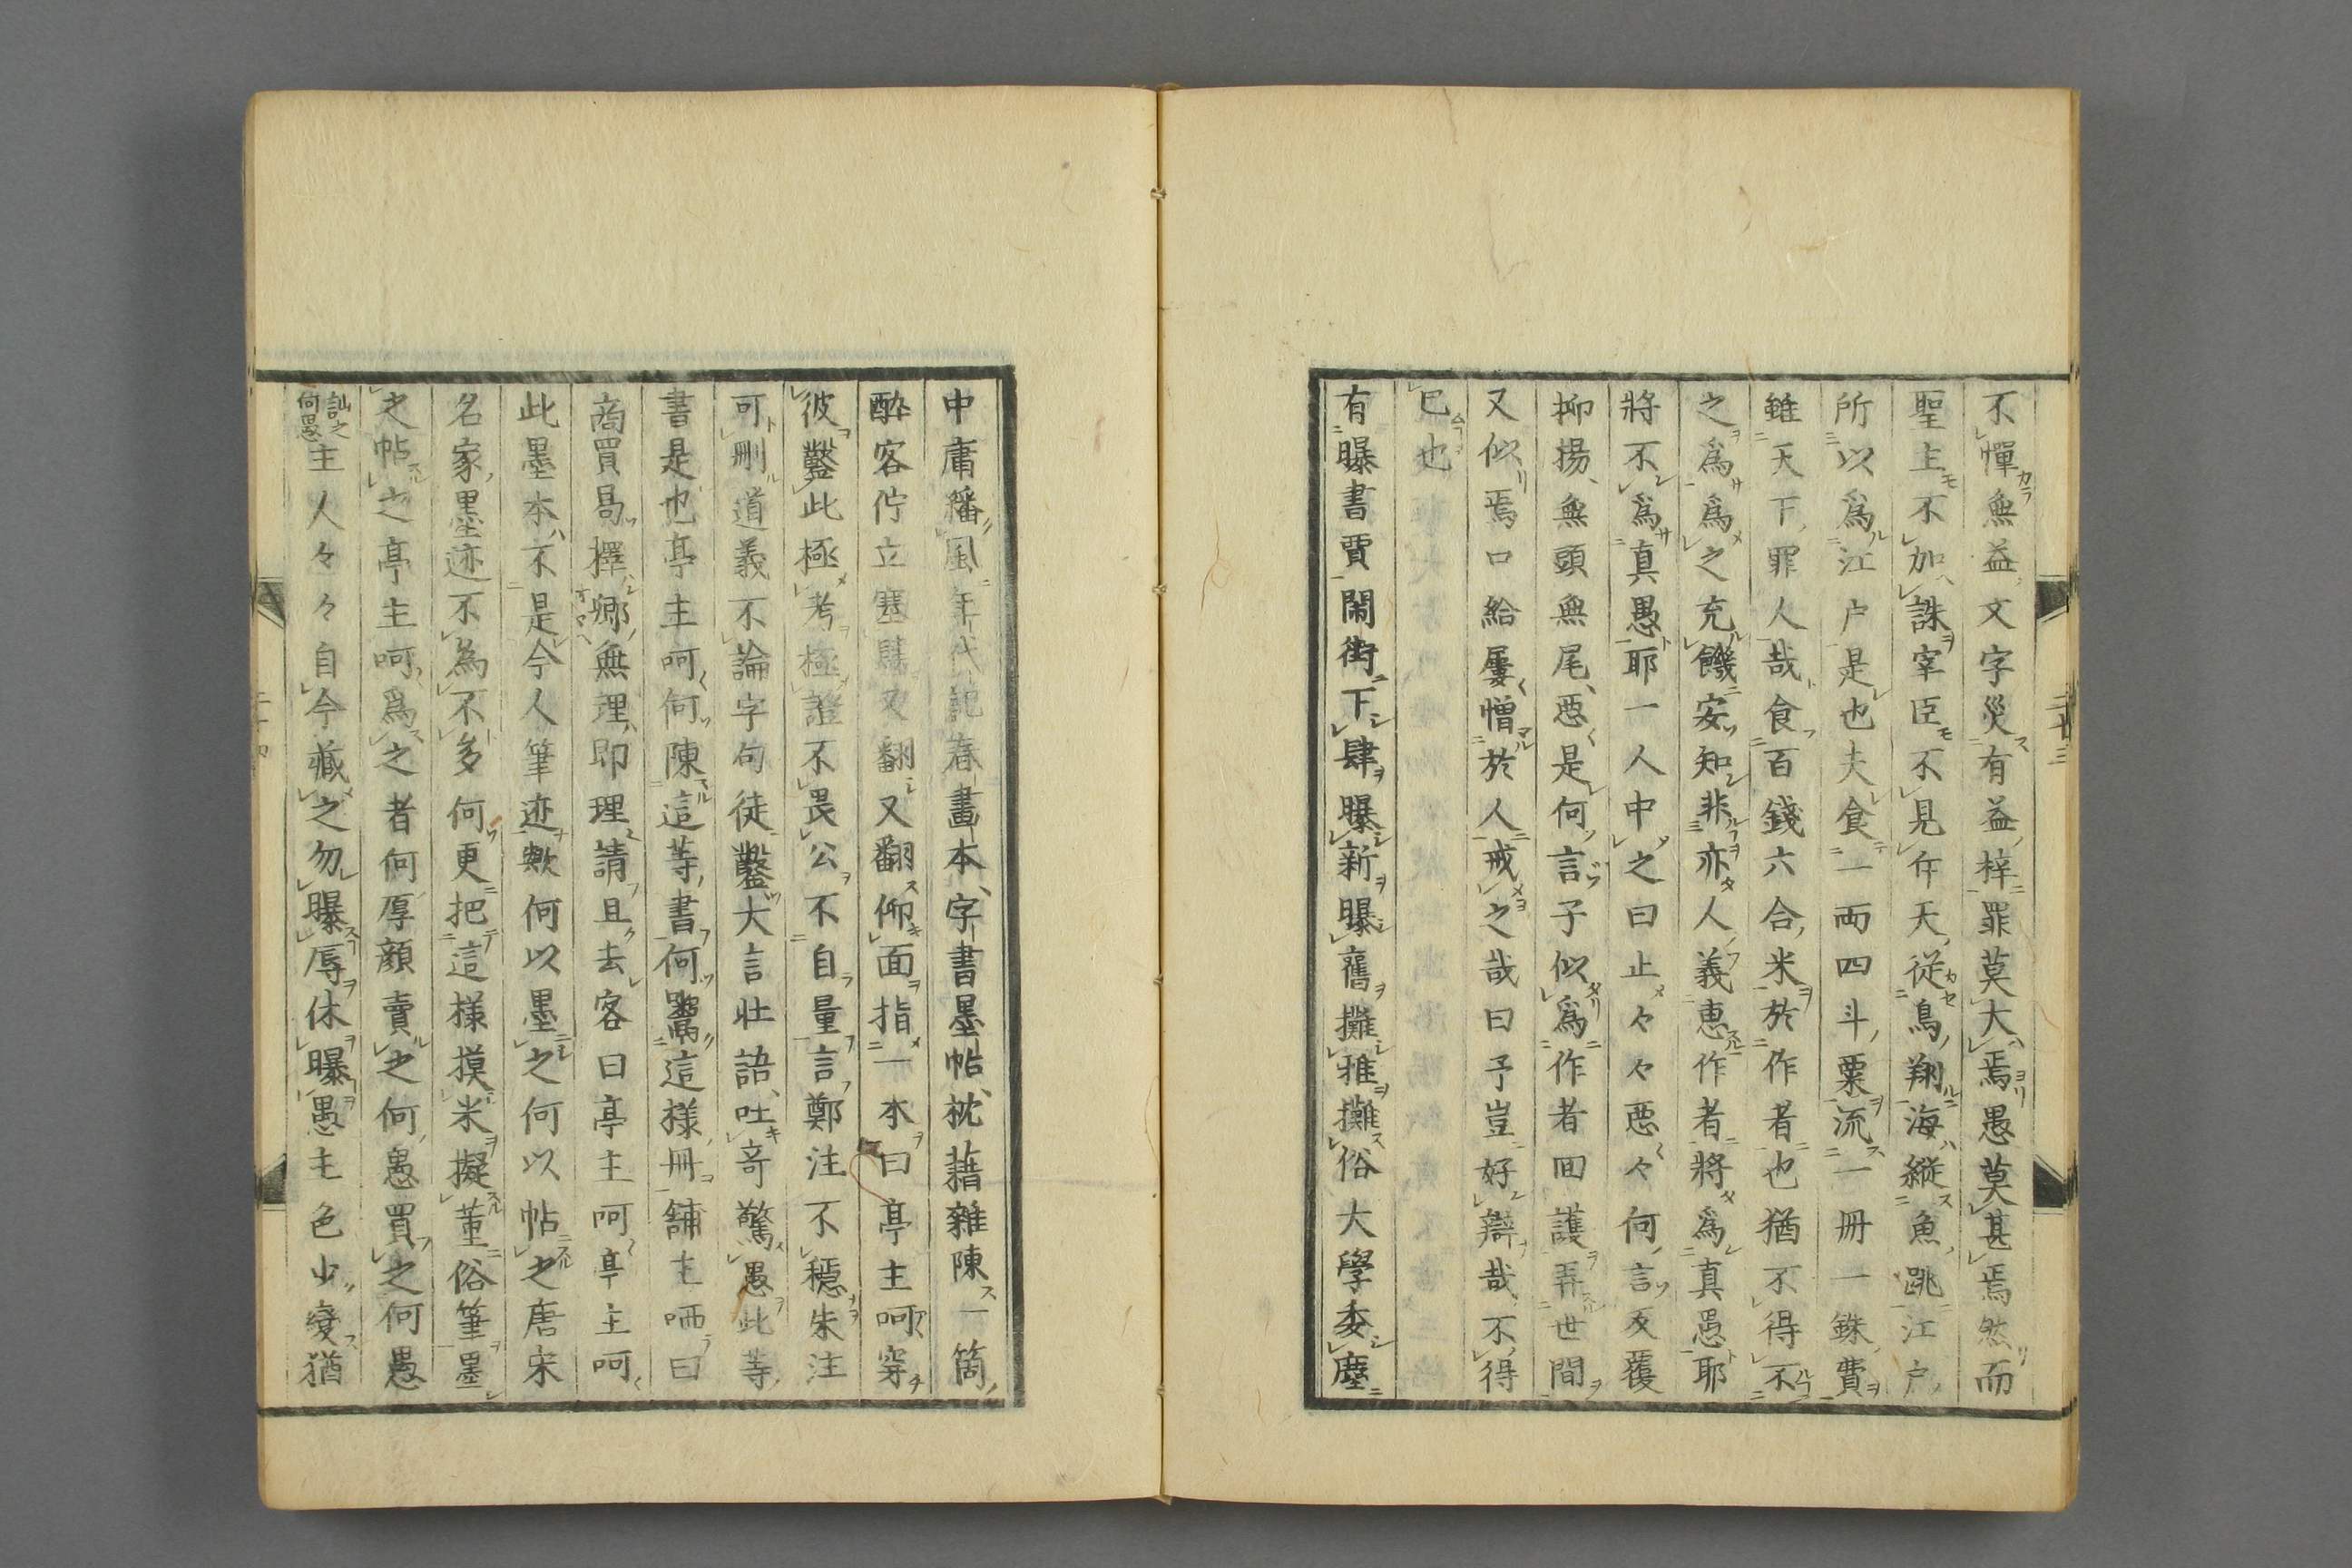 不憚無益文字災有益梓罪莫大焉愚莫甚焉然而
聖主不加誅宰臣不見斥天從鳥翔海縱魚跳江戶
所以爲江戶是也夫食一両四斗粟流一冊一銖費
雖天下罪人哉食百錢六合米於作者也猶不得不
之爲爲之充饑安知非亦人義恵作者將爲真愚耶
將不爲真愚耶一人中之曰止々々悪々何言反覆
抑揚無頭無尾悪是何言子似爲作者回護弄世間
又似焉口給屢憎於人戒之哉曰予豈好辯哉不得
已也
有曝書賈鬧街下肆曝新曝舊攤雅攤俗大學委塵
二十三
中庸飜風年代記春畫本字書墨帖枕藉雜陳一箇
酔客佇立塞肆又翻又翻仰面指一本曰亭主呵穿
彼鑿此極考極證不畏公不自量言鄭注不穩朱注
可刪道義不論字句徒鑿大言壮語吐奇驚愚此等
書是也亭主呵何陳這等書何鬻這樣冊舖主哂曰
商買昜擇郷無理即理請且去客曰亭主呵亭主呵
此墨本不是今人筆迹歟何以墨之何以帖之唐宋
名家墨迹不為不多何更把這様摸米擬董俗筆墨
之帖之亭主呵爲之者何厚顏賣之何愚買之何愚
訕之何愚主人々々自今藏之勿曝辱休曝愚主色少變猶
二十四